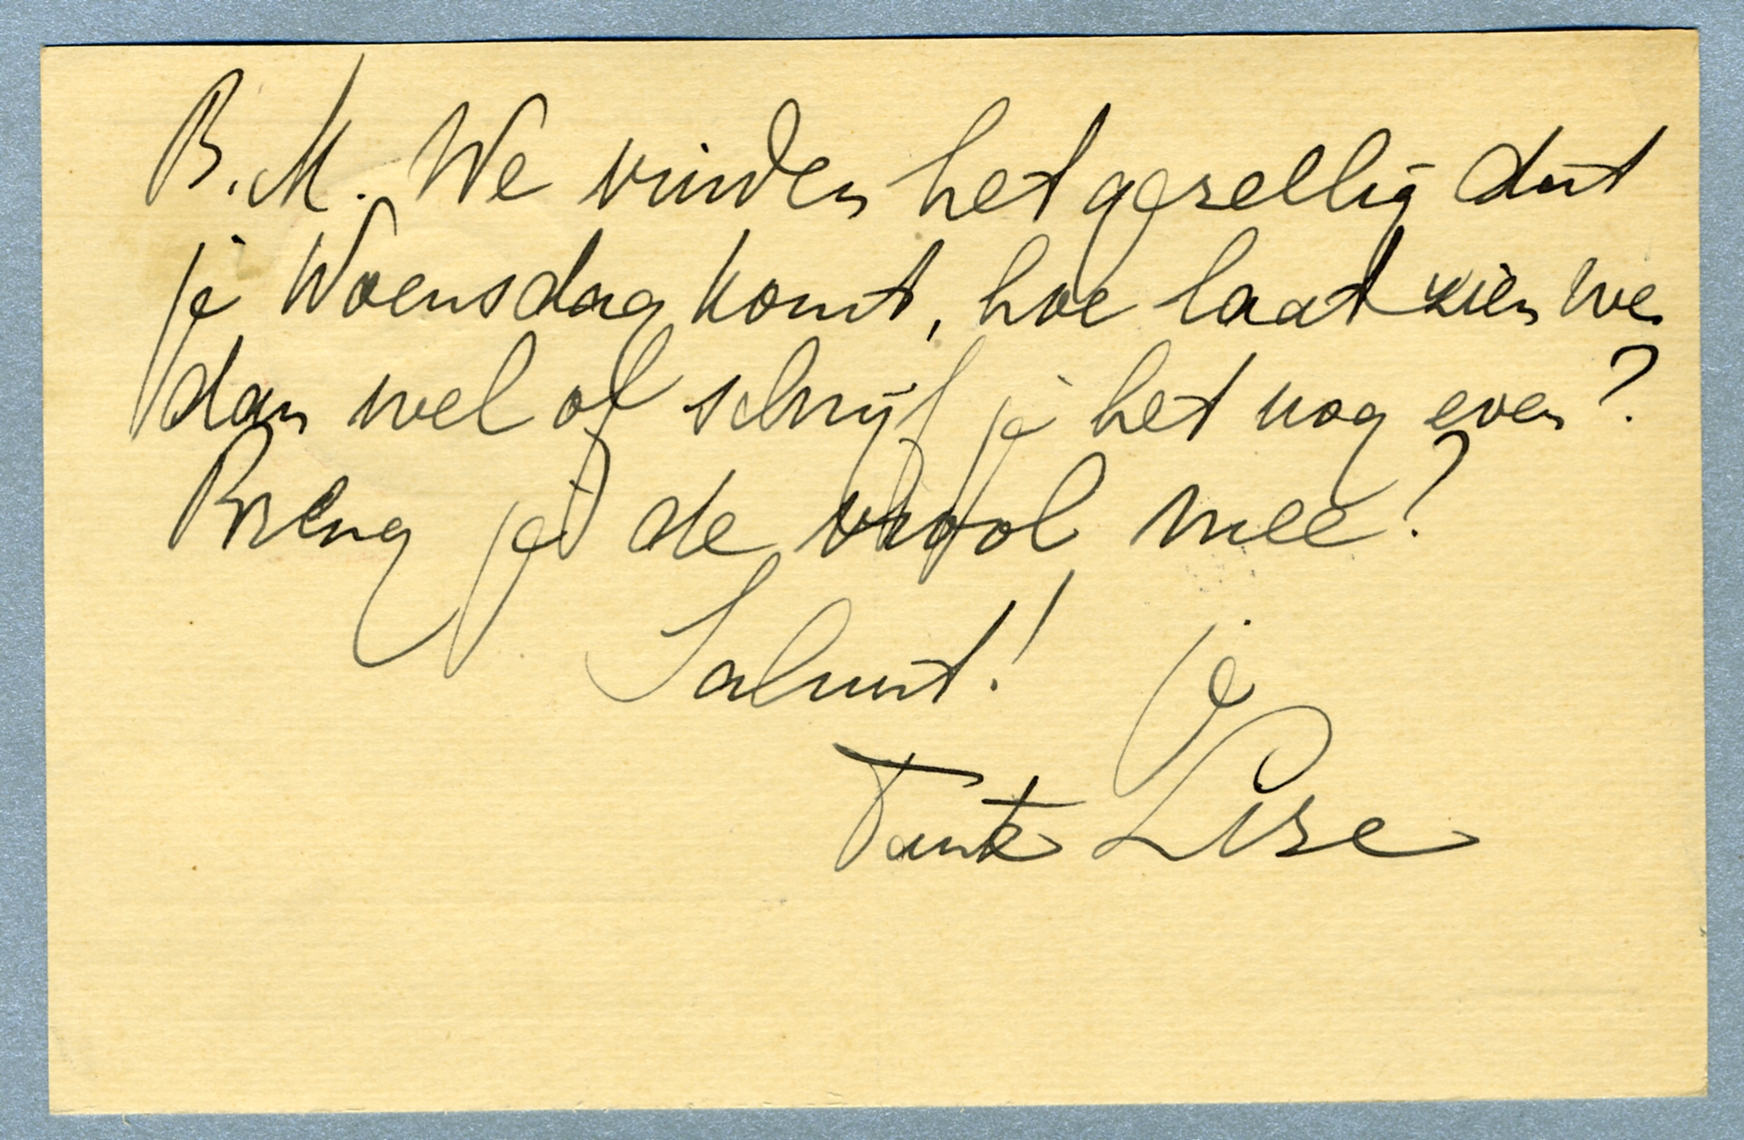 B.M. We vinden het gezellig dat
je Woensdag komt, hoe laat zien we
dan wel of schrijf je het nog even?
Breng je de viool mee?
Saluut! je
Tante Lise